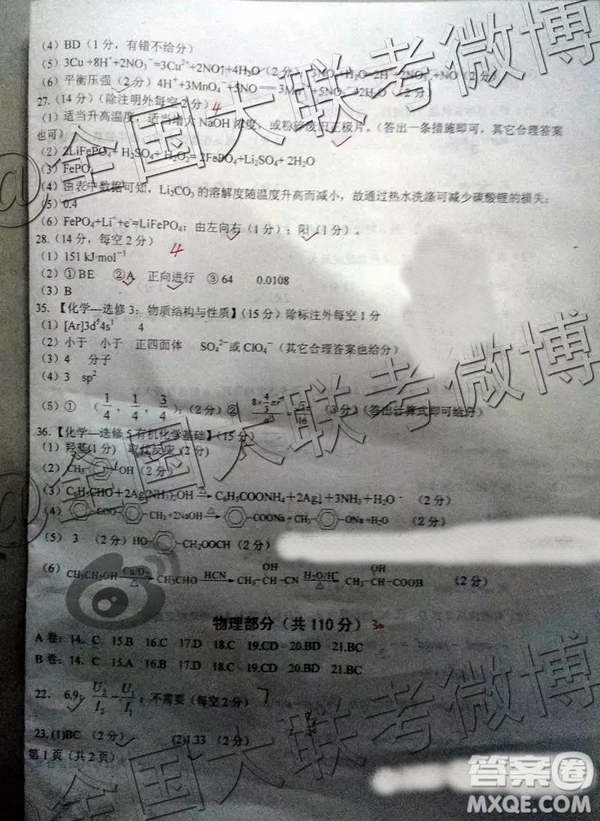 (4) BD(1分，有错不给分)
(5) 3Cu+8H⁺+2NO₃⁻=3Cu²⁺+2NO↑+4H₂O(2分)
(6) 平衡压强(2分)
27.(14分)(除注明外每空2分)
(1) 适当升高温度，适当增大NaOH浓度，或粉碎废旧正极片。(答出一条措施即可，其它合理答案
也可)
(2) 2LiFePO₄+H₂SO₄+H₂O₂=2FePO₄+Li₂SO₄+2H₂O
(3) FePO₄
(4) 由表中数据可知，Li₂CO₃的溶解度随温度升高而减小，故通过热水洗涤可减少碳酸锂的损失；
(5) 0.4
(6) FePO₄+Li⁺+e⁻=LiFePO₄；由左向右(1分)；阳(1分)。
28.(14分，每空2分)
(1) 151 kJ·mol⁻¹
(2) ①BE ②A 正向进行 ③64 0.0108
(3) B
35.【化学—选修3：物质结构与性质】(15分)除标注外每空1分
(1) [Ar]3d⁵4s¹ 4
(2) 小于 小于 正四面体 SO₄²⁻或ClO₄⁻(其它合理答案也给分)
(3) 4 分子
(4) 3 sp²
(5) ① (1/4，1/4，3/4)；(2分) ② (3分)(答出计算式即可给分)
36.【化学—选修5有机化学基础】(15分)
(1) 羟基(1分) 取代反应(2分)
(2) CH₃ OH (2分)
(3) C₆H₅CHO+2Ag(NH₃)₂OH→C₆H₅COONH₄+2Ag↓+3NH₃+H₂O (2分)
(4) COO CH₃+2NaOH △ COONa+CH₃ ONa+H₂O (2分)
(5) 3 (2分) HO CH₂OOCH (2分)
(6) CH₃CH₂OH Cu/O₂ △ CH₃CHO HCN CH₃-CH(OH)-CN H₂O/H⁺ △ CH₃-CH(OH)-COOH (2分)
物理部分(共110分)
A卷：14.C 15.B 16.C 17.D 18.C 19.CD 20.BD 21.BC
B卷：14.C 15.A 16.B 17.D 18.C 19.CD 20.BD 21.BC
22. 6.9；U₂/I₂-U₁/I₁；不需要(每空2分) 7
23.(1)BC (2分) (2)1.33 (2分)
第1页(共2页)
@全国大联考微博
答案卷
MXQE.COM